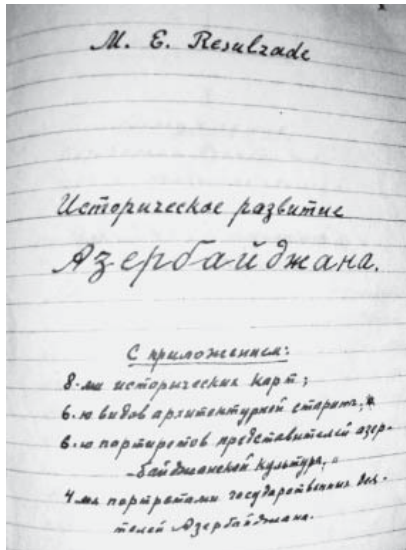 M. E. Resulzade
Историческое развитие
Азербайджана.
С приложением:
8-ми исторических карт;
6-ю видов архитектурной старины;
6-ю портретов представителей азер-
-байджанской культуры,
4-мя портретами государственных дея-
телей Азербайджана.